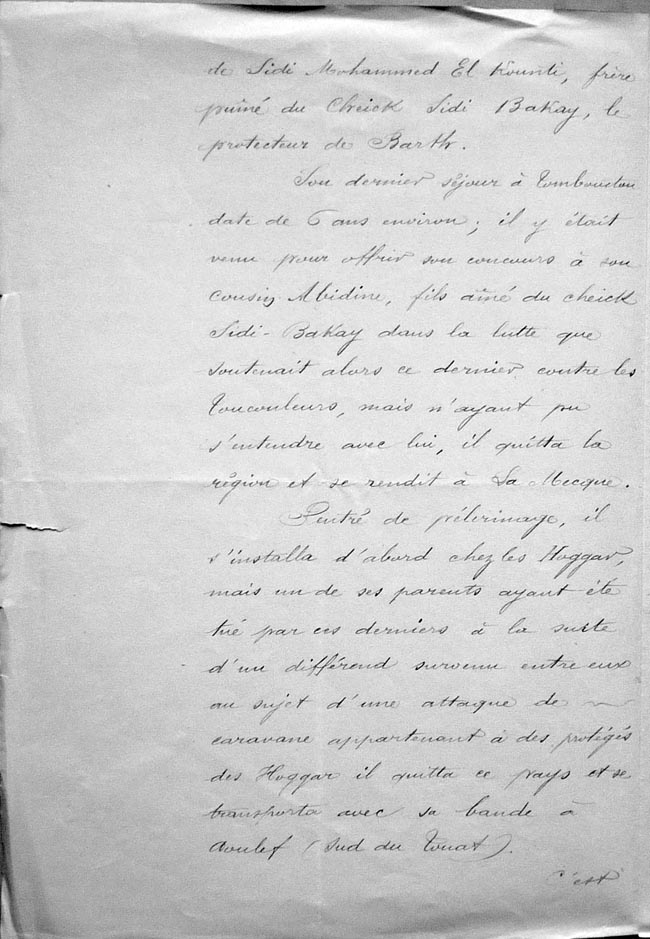 de Sidi Mohammed El Kounti, frère
puîné du Cheick Sidi Bakay, le
protecteur de Barth.
Son dernier séjour à Tombouctou
date de 6 ans environ; il y était
venu pour offrir son concours à son
cousin Abidine, fils aîné du cheick
Sidi-Bakay dans la lutte que
soutenait alors ce dernier contre les
Toucouleurs, mais n'ayant pu
s'entendre avec lui, il quitta la
région et se rendit à La Mecque.
Rentré de pélerinage, il
s'installa d'abord chez les Hoggar,
mais un de ses parents ayant été
tué par ces derniers à la suite
d'un différend survenu entre eux
au sujet d'une attaque de
caravane appartenant à des protégés
des Hoggar il quitta ce pays et se
transporta avec sa bande à
Aoulef (Sud du Touat).
C'est